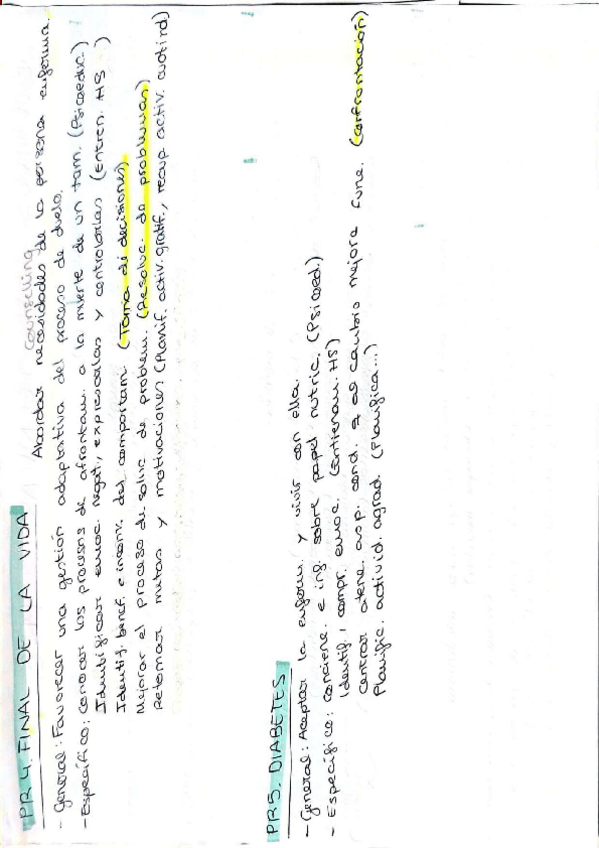 PR 4. FINAL DE LA VIDA
Counselling
Abordar necesidades de la persona enferma.
- General: Favorecer una gestión adaptativa del proceso de duelo.
- Específico: conocer los procesos de afrontam. a la muerte de un fam. (Psicoeduc.)
Identificar emoc. negat., expresarlas y controlarlas (Entren. HS )
Identif. benef. e inconv. del comportam. (Toma de decisiones)
Mejorar el proceso de soluc. de problem. (Resoluc. de problemas)
Retomar metas y motivaciones (Planif. activ. gratif., recup activ. )
PR5. DIABETES
- General: Aceptar la enferm. y vivir con ella.
- Específico: conciene. e inf. sobre papel nutric. (Psicoed.)
Identif., compr. emoc. (entrenam. HS)
centrar atenc. asp. cond. q el cambio mejore func. (confrontación)
Planific. activid. agrad. (Planifica...)